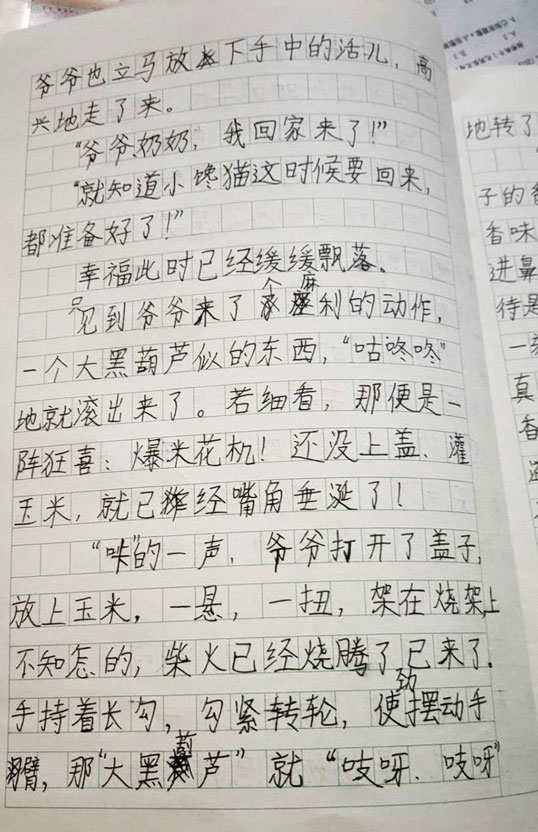 爷爷也立马放下手中的活儿，高
兴地走了来。
"爷爷奶奶，我回家来了！"
"就知道小馋猫这时候要回来，
都准备好了！"
幸福此时已经缓缓飘落。
只见到爷爷来了个麻利的动作，
一个大黑葫芦似的东西，"咕咚咚"
地就滚出来了。若细看，那便是一
阵狂喜：爆米花机！还没上盖、灌
玉米，就已经嘴角垂涎了！
"咔"的一声，爷爷打开了盖子，
放上玉米，一悬，一扭，架在烧架上
不知怎的，柴火已经烧腾了已来了。
手持着长勾，勾紧转轮，使劲摆动手
臂，那"大黑葫芦"就"吱呀、吱呀"
地转了
子的香
香味
进鼻
待是
一刻
真
香